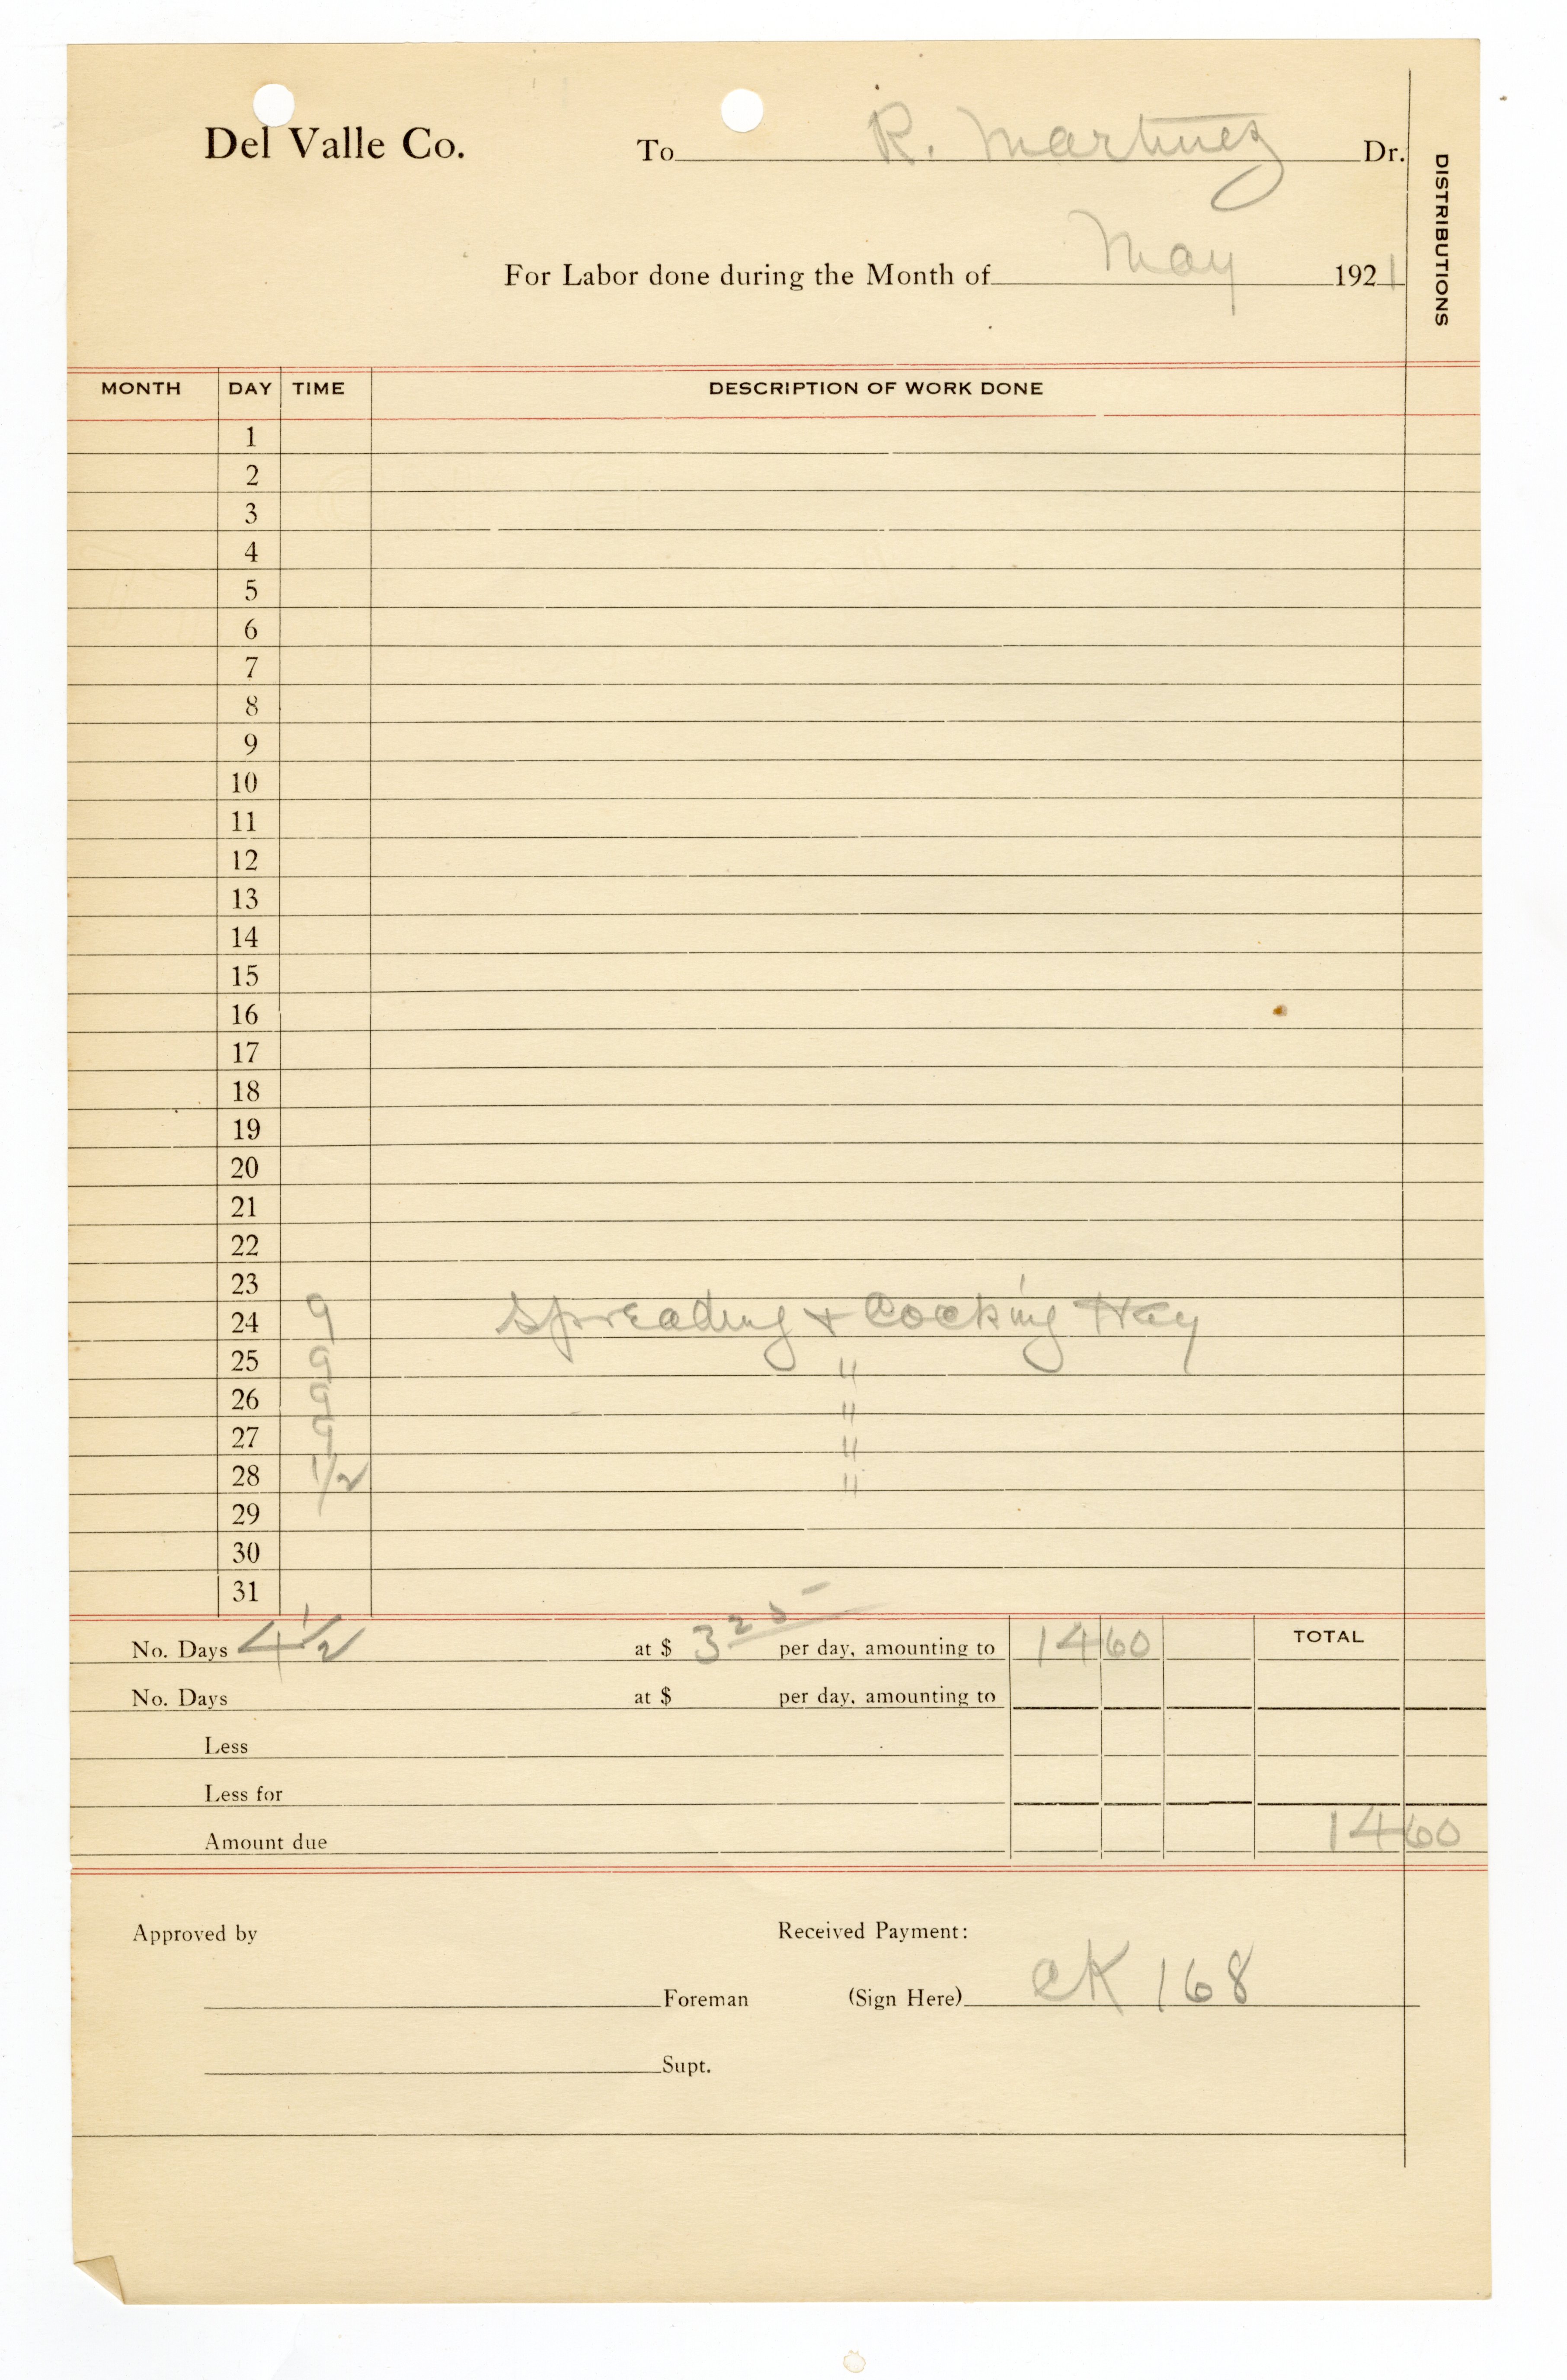 Del Valle Co. To R. Martinez Dr.
DISTRIBUTIONS
For Labor done during the Month of May 1921
MONTH DAY TIME DESCRIPTION OF WORK DONE
1
2
3
4
5
6
7
8
9
10
11
12
13
14
15
16
17
18
19
20
21
22
23
24 9 Spreading + Cocking Hay
25 9 "
26 9 "
27 9 "
28 1/2 "
29
30
31
No. Days 4 1/2 at $ 3 25 per day, amounting to 14 60 TOTAL
No. Days at $ per day, amounting to
Less
Less for
Amount due 14 60
Approved by Received Payment:
Foreman (Sign Here) CK 168
Supt.